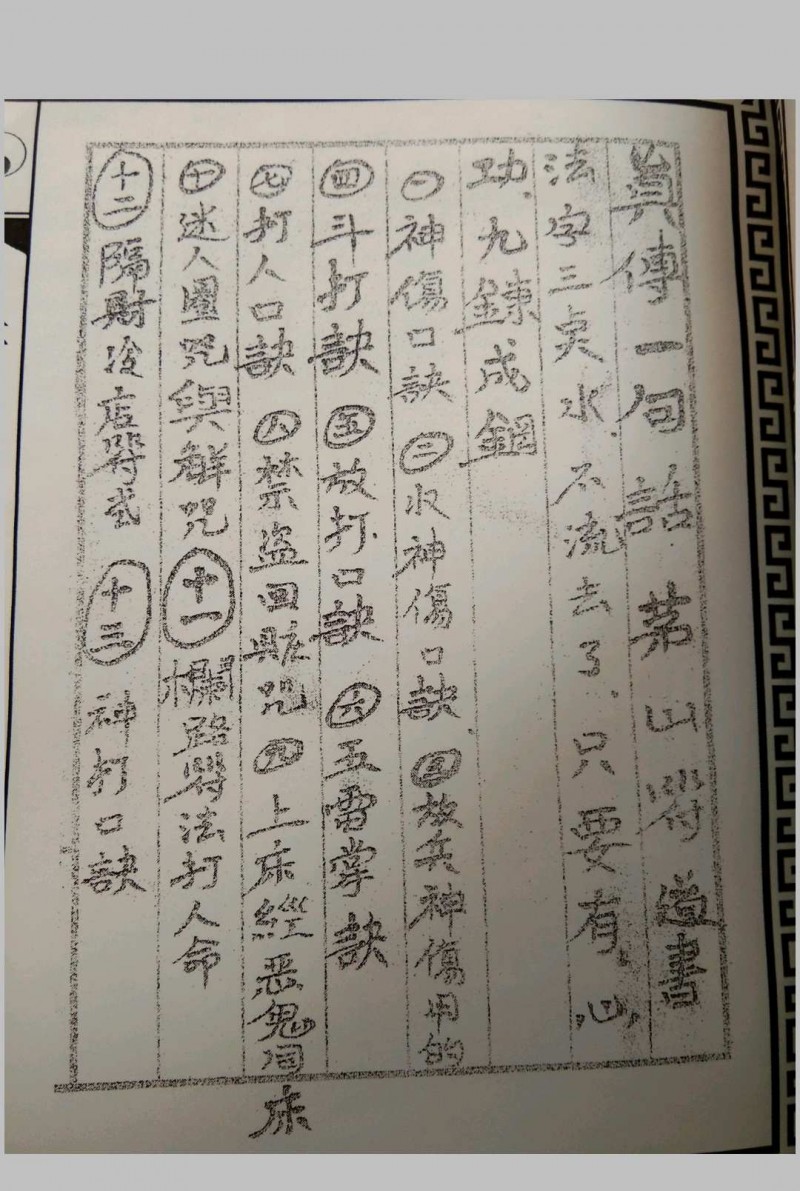 真傳一句話茅山符道書
法字三点水.不流去了.只要有心
功.九鍊成鋼
㊀神傷口訣㊁收神傷口訣㊂放兵神傷用的
㊃斗打訣㊄放打口訣㊅五雷掌訣
㊆打人口訣㊇禁盗回賍咒㊈上床經恶鬼同床
㊉迷人圍咒與解咒十一欄路符法打人命
十二隔財冷店符式
十三神打口訣